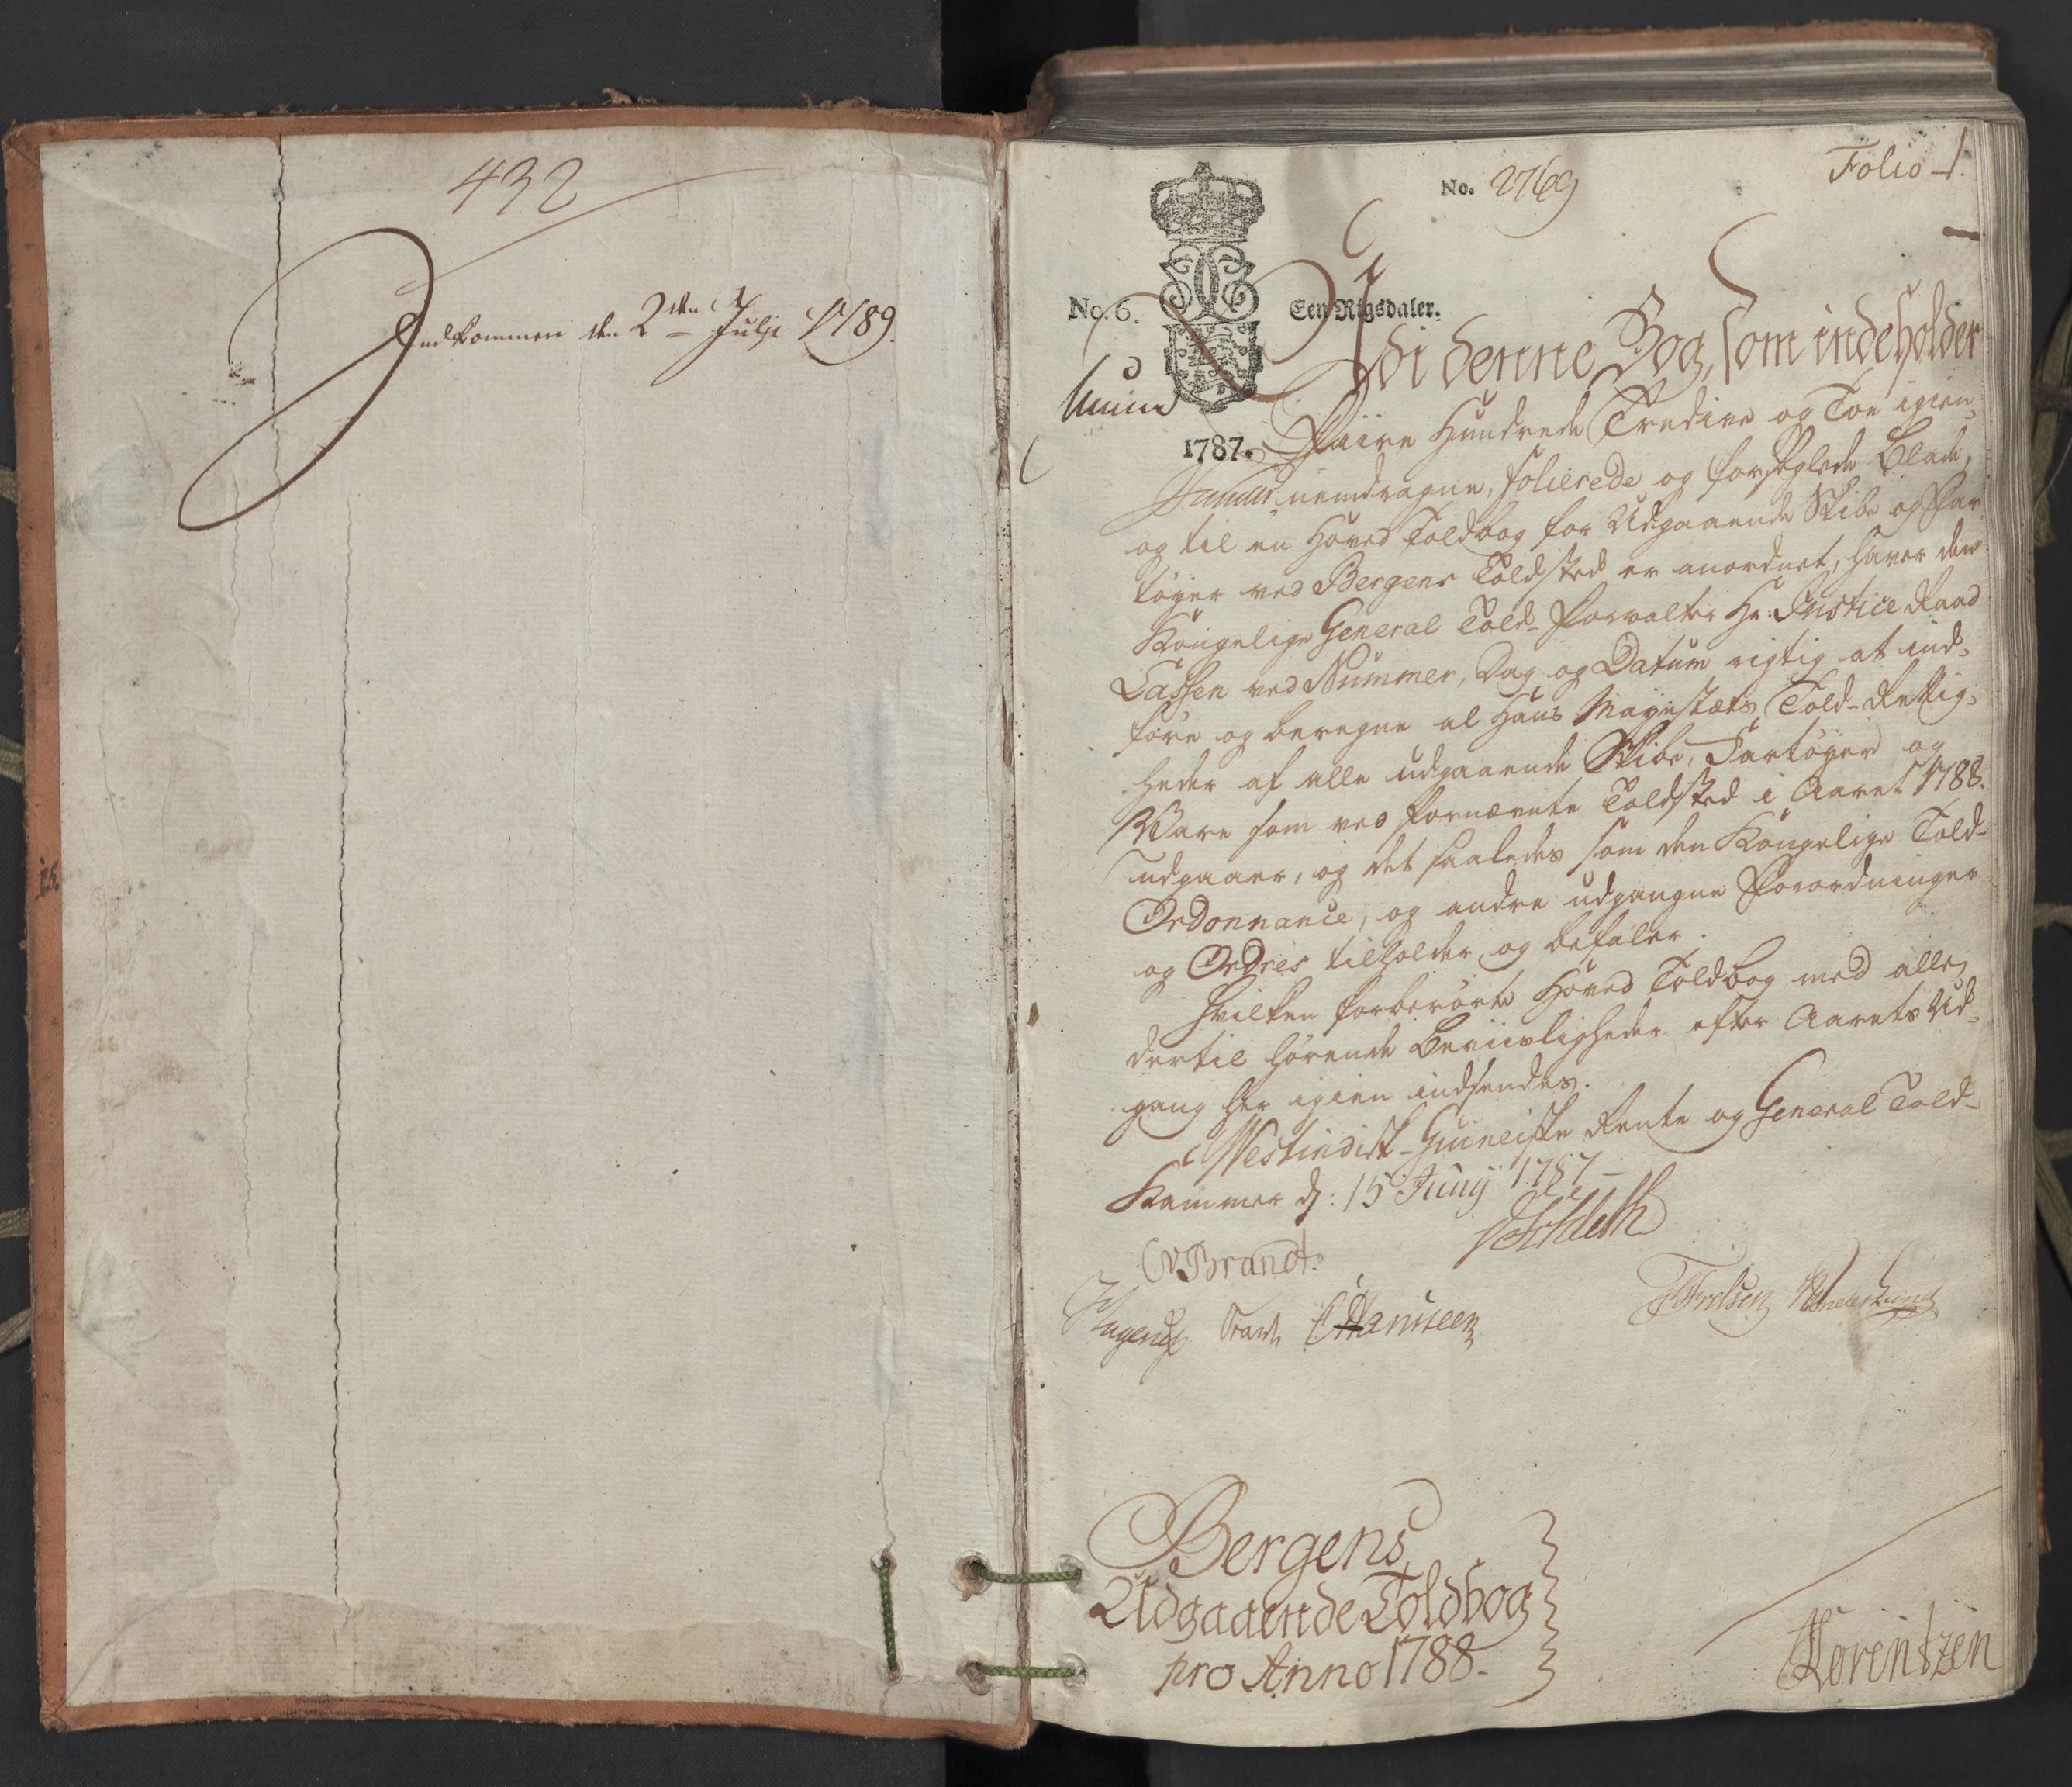 432
Indkommen den 2den Julji 1789.
No. 2769
Folio 1.
No. 6.
Een Rigsdaler.
1787.
Udi denne Bog, som indeholder
Fiire Hundrede Tredive og Toe igien-
nemdragne, folierede og forseglede Blade,
og til en Hoved Toldbog for Udgaaende Skibe og Far-
tøyer ved Bergens Toldsted er anordnet, haver den
Kongelige General Told-Forvalter Hr: Justice Raad
Lassen ved Nummer, Dag og Datum rigtig at ind-
føre og beregne al Hans Mayestæts Told-Rettig-
heder af alle udgaaende Skibe, Fartøyer og
Vare som ved fornævnte Toldsted i Aaret 1788.
udgaaer, og det saaledes som den Kongelige Told-
Ordonnance, og andre udgangne Forordninger
og Ordres tilholder og befaler.
Hvilken forberørte Hoved Toldbog med alle
dertil hørende Beviisligheder efter Aarets Ud-
gang her igien indsendes.
Westindisk-Guineiske Rente og General Told-
Kammer d: 15 Junij 1787
CvBrandt.
Bergens
Udgaaende Toldbog
pro Anno 1788.
Lorentzen